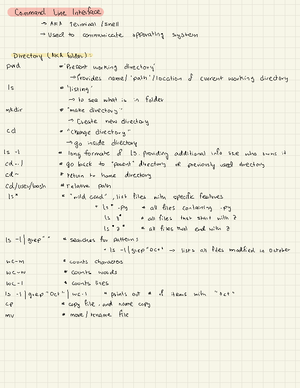 Command Line Interface
→ AKA Terminal/shell
→ Used to communicate opperating system
Directory (AKA folder)
pwd * "Present working directory"
→ Provides name/"path"/location of current working directory
ls * "listing"
→ to see what is in folder
mkdir * "make directory"
→ Create new directory
cd * "Change directory"
→ go inside directory
ls -l * long formate of ls providing additional info like who owns it
cd../ * go back to "parent" directory or previously used directory
cd~ * return to home directory
cd/user/bash * relative path
ls* * "wild card", list files with specific features
* ls * .py * all files containing .py
ls 3* * all files that start with 3
ls *3 * all files that end with 3
ls -l|grep" " * searches for pattern:
* ls -l|grep"Oct" → lists all files modified in October
wc-m * counts characters
wc-w * counts words
wc-l * counts lines
ls -l|grep"Oct"|wc-l * prints out # of items with "Oct"
cp * copy file, and name copy
mv * move/rename file